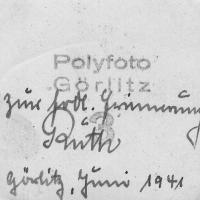 Polyfoto
Görlitz
zur frdl. Erinnerung
Ruth
Görlitz, Juni 1941